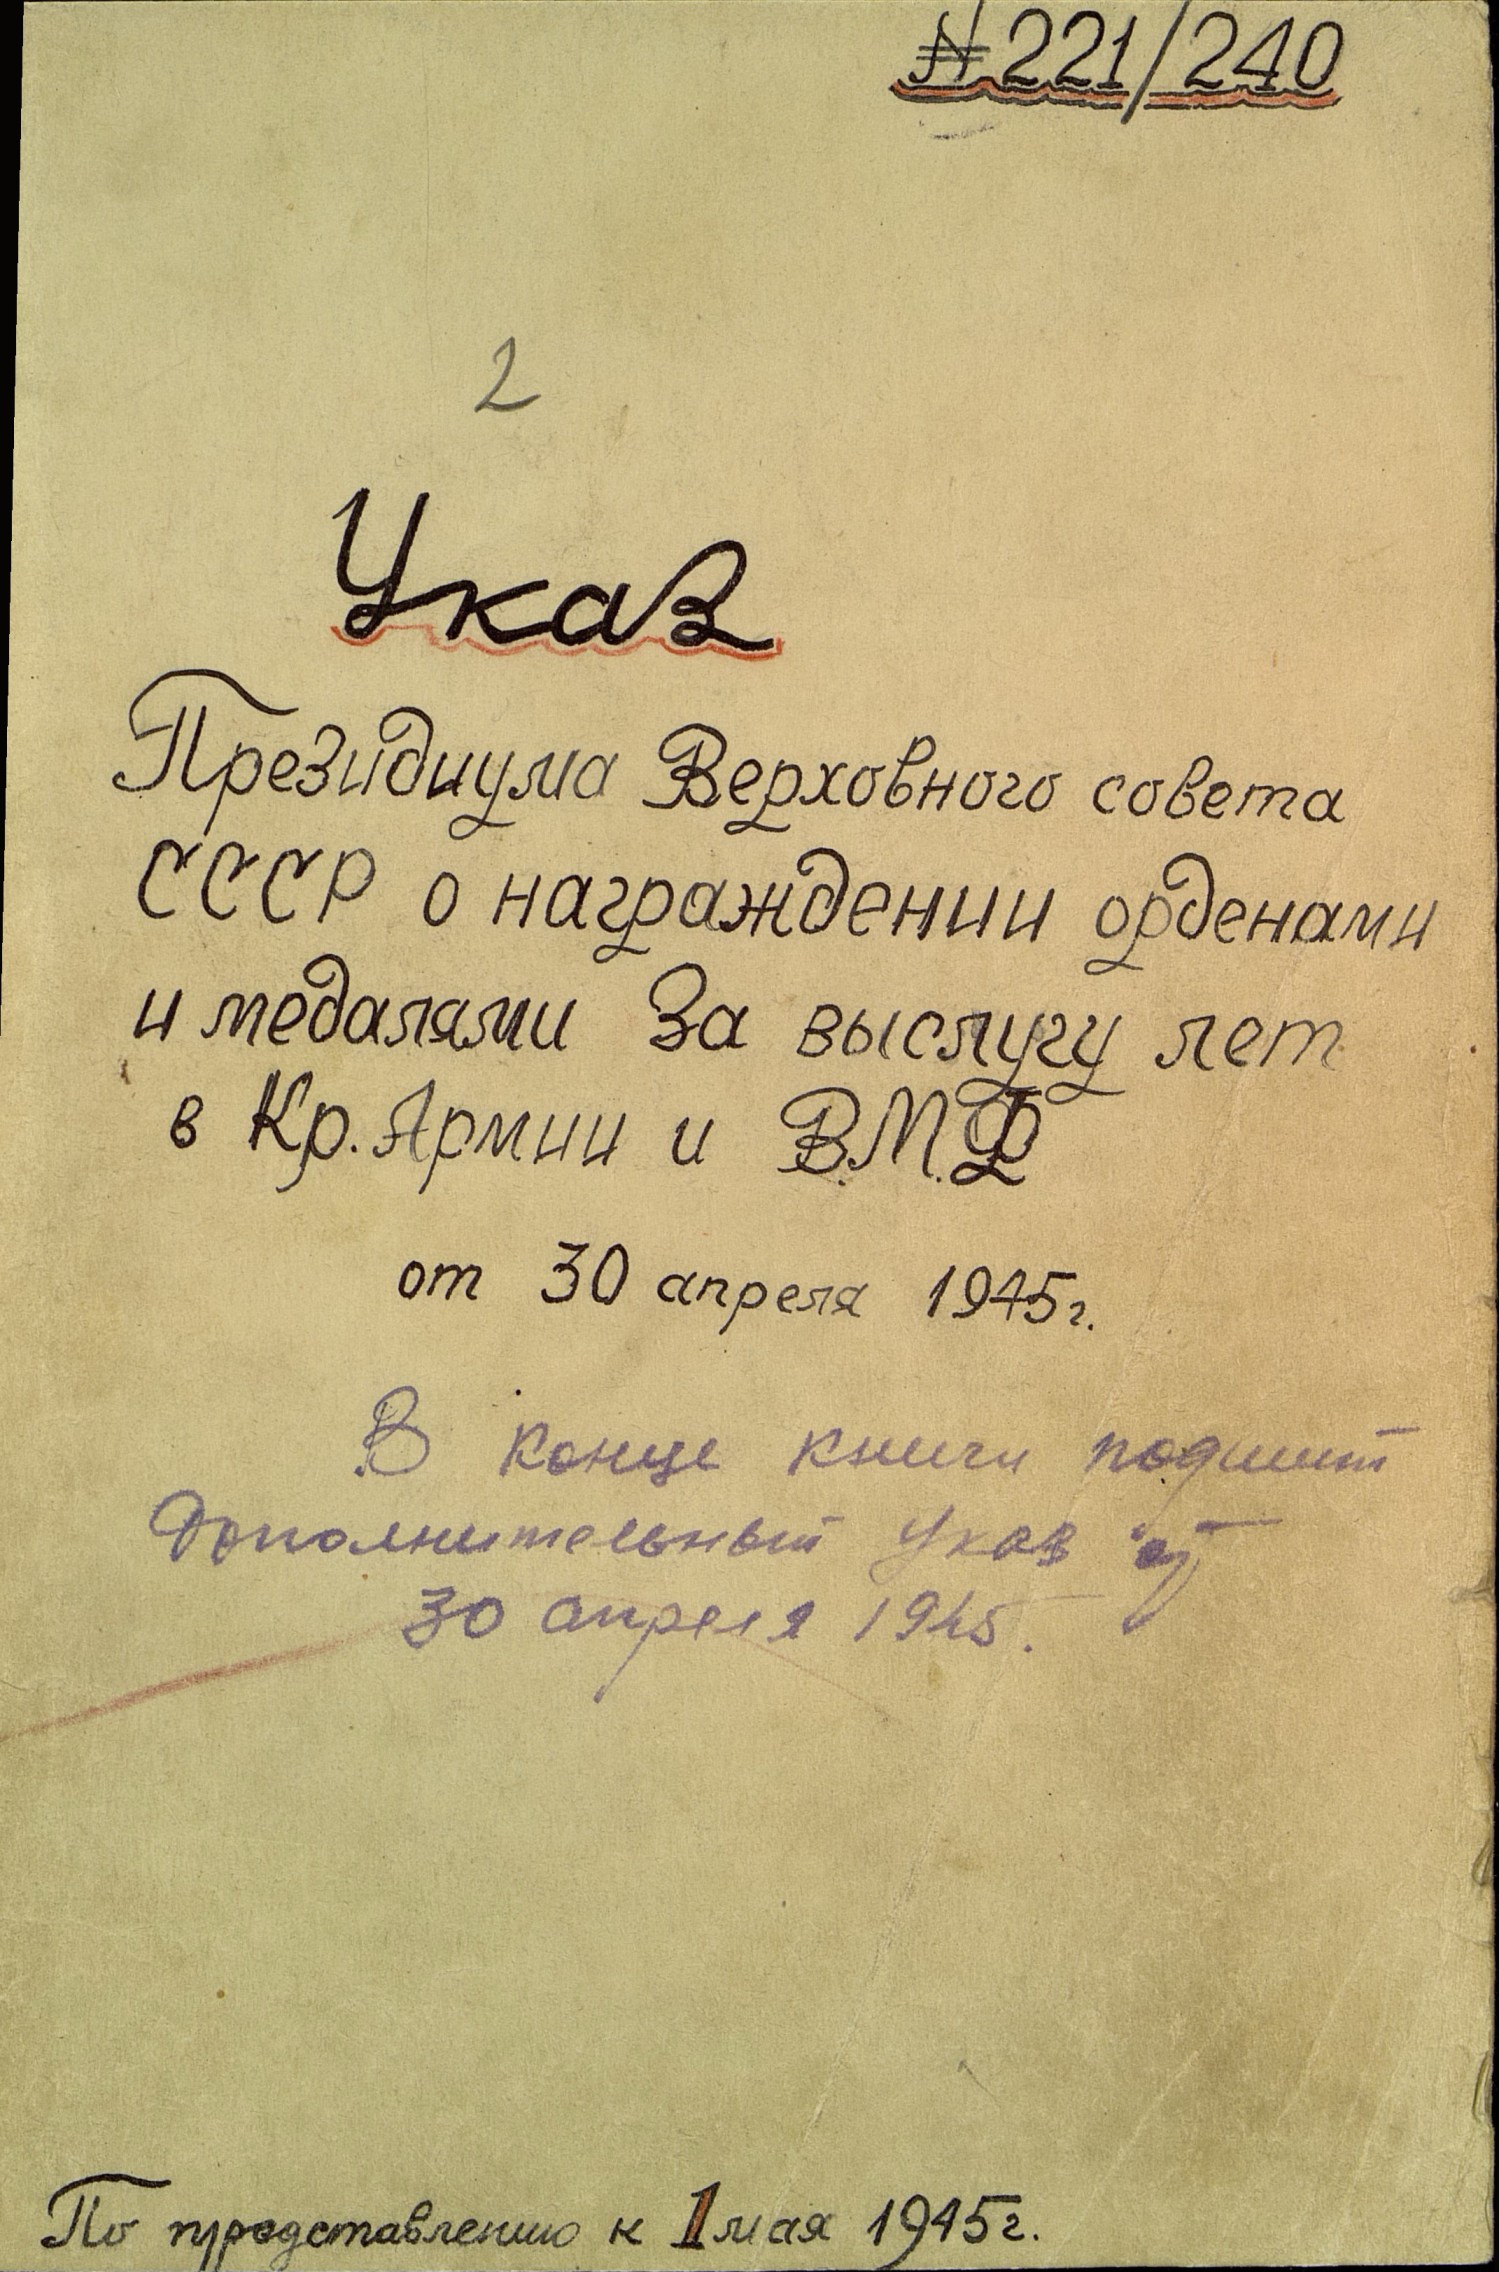 №221/240
2
Указ
Президиума Верховного совета
СССР о награждении орденами
и медалями За выслугу лет
в Кр. Армии и В.М.Ф
от 30 апреля 1945г.
В конце книги подшит
Дополнительный Указ от
30 апреля 1945.
По представлению к 1 мая 1945г.